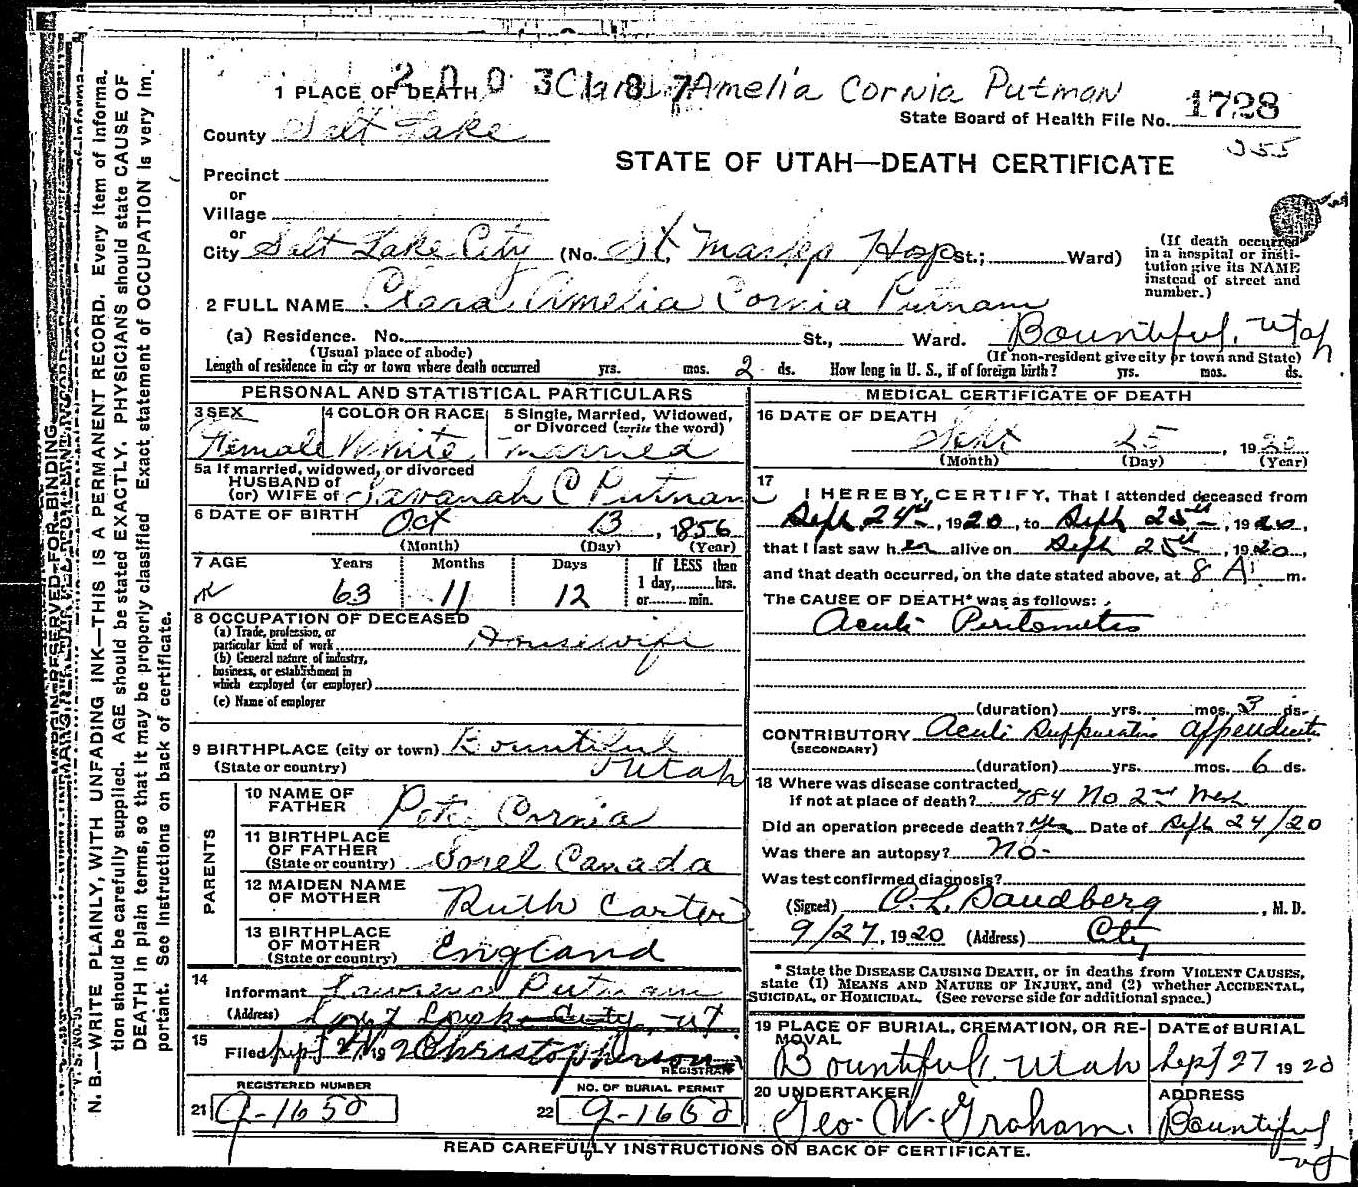 2003187
Clara Amelia Cornia Putman
1 PLACE OF DEATH
State Board of Health File No. 1728
County Salt Lake
355
STATE OF UTAH—DEATH CERTIFICATE
Precinct
or
Village
or
City Salt Lake City (No. St. Marks Hosp St.; Ward)
(If death occurred in a hospital or insti-
tution give its NAME
instead of street and
number.)
2 FULL NAME Clara Amelia Cornia Putnam
(a) Residence. No. St., Ward. Bountiful, Utah
(Usual place of abode) (If non-resident give city or town and State)
Length of residence in city or town where death occurred yrs. mos. 2 ds. How long in U. S., if of foreign birth? yrs. mos. ds.
PERSONAL AND STATISTICAL PARTICULARS
3 SEX 4 COLOR OR RACE 5 Single, Married, Widowed,
or Divorced (write the word)
Female White married
5a If married, widowed, or divorced
HUSBAND of
(or) WIFE of Savanah C Putnam
6 DATE OF BIRTH Oct 13, 1856
(Month) (Day) (Year)
7 AGE Years Months Days If LESS than
1 day, hrs.
63 11 12 or min.
8 OCCUPATION OF DECEASED
(a) Trade, profession, or
particular kind of work Housewife
(b) General nature of industry,
business, or establishment in
which employed (or employer)
(c) Name of employer
9 BIRTHPLACE (city or town) Bountiful
(State or country) Utah
PARENTS
10 NAME OF
FATHER Pete Cornia
11 BIRTHPLACE
OF FATHER
(State or country) Sorel Canada
12 MAIDEN NAME
OF MOTHER Ruth Carter
13 BIRTHPLACE
OF MOTHER
(State or country) England
14
Informant Lawrence Putnam
(Address)
15
Filed Sept
Christopherson
REGISTRAR
REGISTERED NUMBER NO. OF BURIAL PERMIT
21 9-1650 22 9-1650
MEDICAL CERTIFICATE OF DEATH
16 DATE OF DEATH
Sept 25, 1920
(Month) (Day) (Year)
17
I HEREBY CERTIFY, That I attended deceased from
Sept. 24th, 1920, to Sept 25th, 1920,
that I last saw her alive on Sept 25th, 1920,
and that death occurred, on the date stated above, at 8 A. m.
The CAUSE OF DEATH* was as follows:
Acute Peritonitis
(duration) yrs. mos. 3 ds.
CONTRIBUTORY Acute Suppurative Appendicitis
(SECONDARY)
(duration) yrs. mos. 6 ds.
18 Where was disease contracted
If not at place of death? 784 No 2nd West
Did an operation precede death? Yes Date of Sept 24/20
Was there an autopsy? No-
Was test confirmed diagnosis?
(Signed) C. L. Sandberg, M. D.
9/27, 1920 (Address) City
* State the DISEASE CAUSING DEATH, or in deaths from VIOLENT CAUSES,
state (1) MEANS AND NATURE OF INJURY, and (2) whether ACCIDENTAL,
SUICIDAL, or HOMICIDAL. (See reverse side for additional space.)
19 PLACE OF BURIAL, CREMATION, OR RE-
MOVAL DATE of BURIAL
Bountiful, Utah Sept 27 1920
20 UNDERTAKER ADDRESS
Geo. W. Graham. Bountiful
ut
READ CAREFULLY INSTRUCTIONS ON BACK OF CERTIFICATE.
MARGIN RESERVED FOR BINDING
N. B.—WRITE PLAINLY, WITH UNFADING INK—THIS IS A PERMANENT RECORD. Every item of informa-
tion should be carefully supplied. AGE should be stated EXACTLY. PHYSICIANS should state CAUSE OF
DEATH in plain terms, so that it may be properly classified. Exact statement of OCCUPATION is very im-
portant. See Instructions on back of certificate.